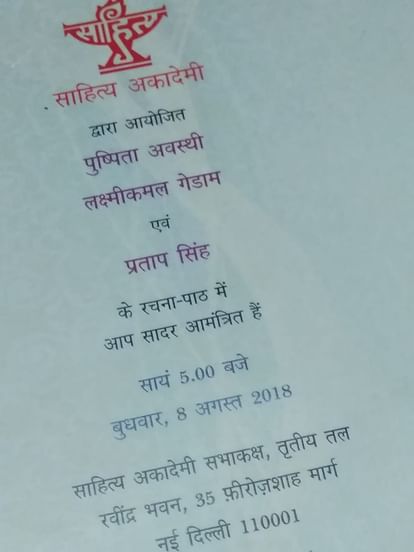 साहित्य
साहित्य अकादेमी
द्वारा आयोजित
पुष्पिता अवस्थी
लक्ष्मीकमल गेडाम
एवं
प्रताप सिंह
के रचना-पाठ में
आप सादर आमंत्रित हैं
सायं 5.00 बजे
बुधवार, 8 अगस्त 2018
साहित्य अकादेमी सभाकक्ष, तृतीय तल
रवींद्र भवन, 35 फ़ीरोज़शाह मार्ग
नई दिल्ली 110001